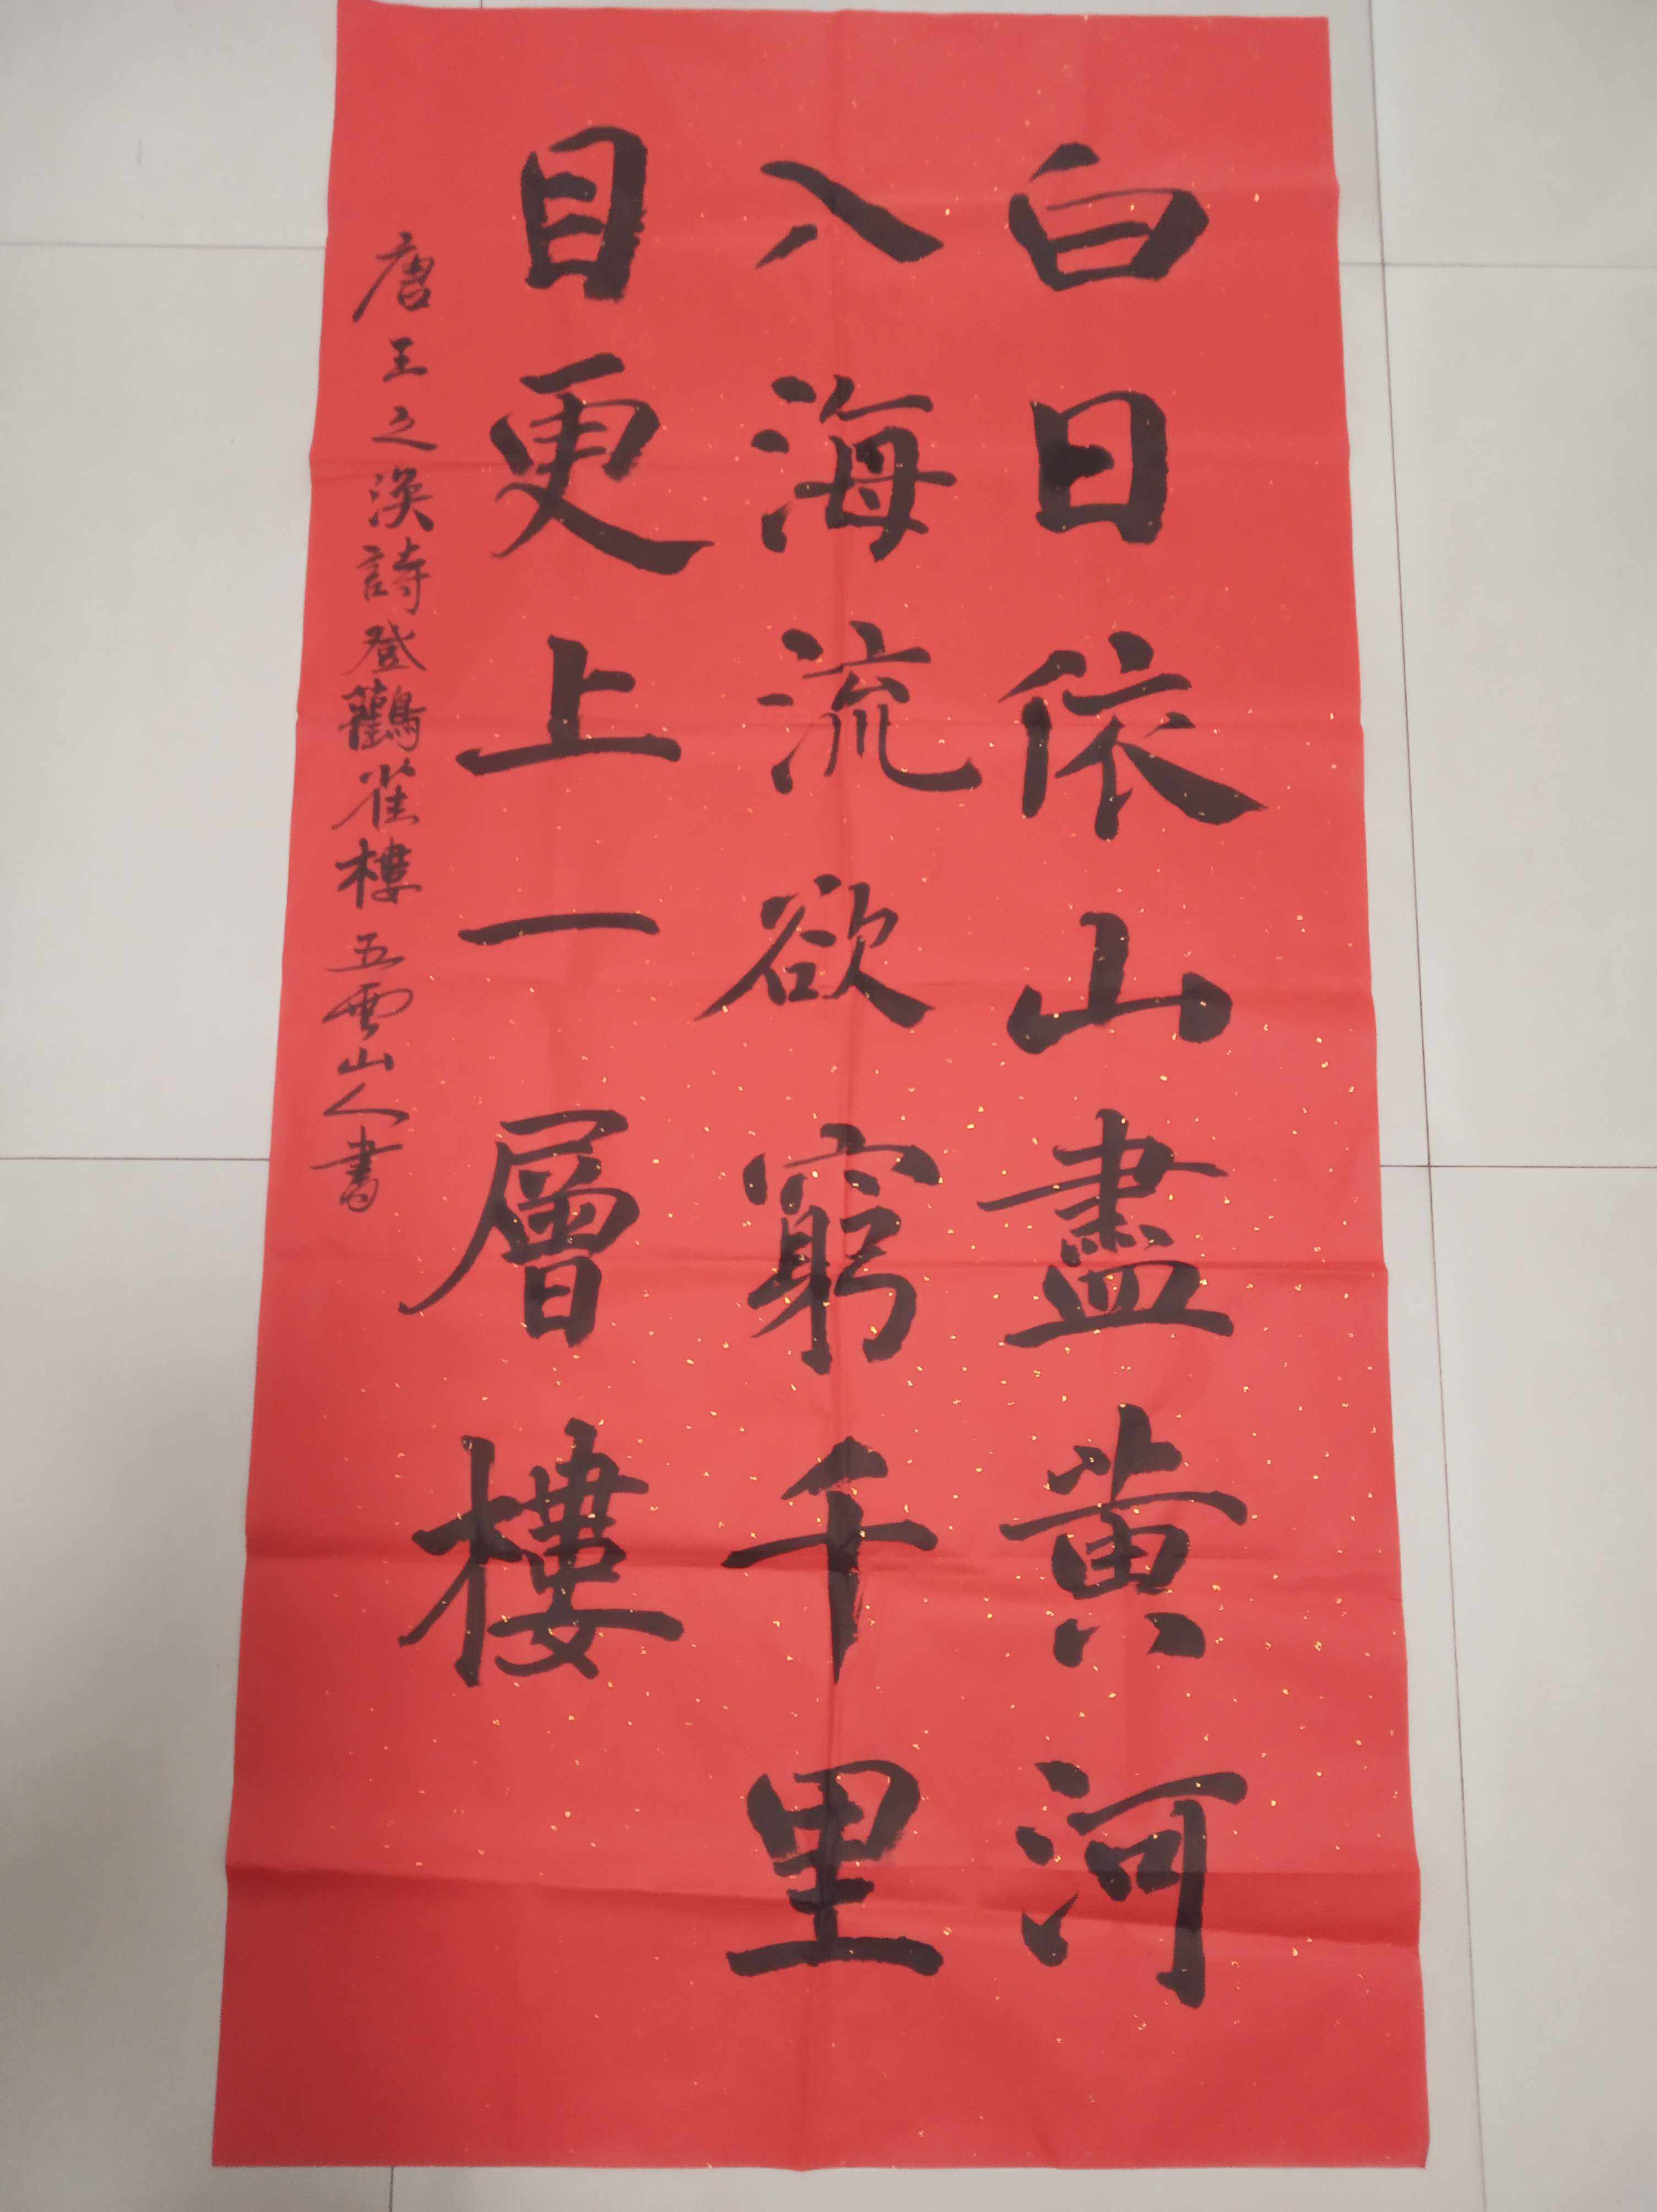 白日依山盡黄河
入海流欲窮千里
目更上一層樓
唐王之渙詩登鸛雀樓五雲山人書